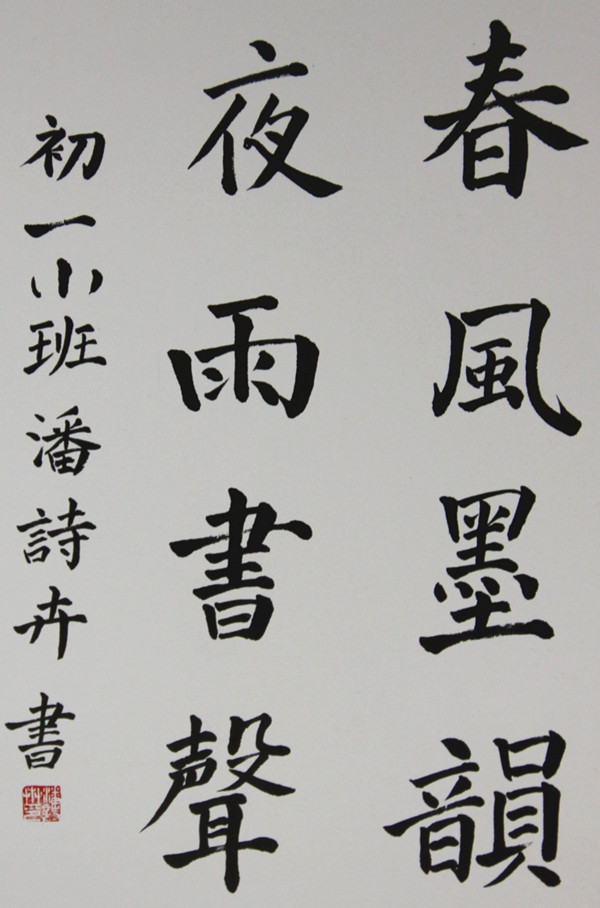 春風墨韻
夜雨書聲
初一小班潘詩卉書